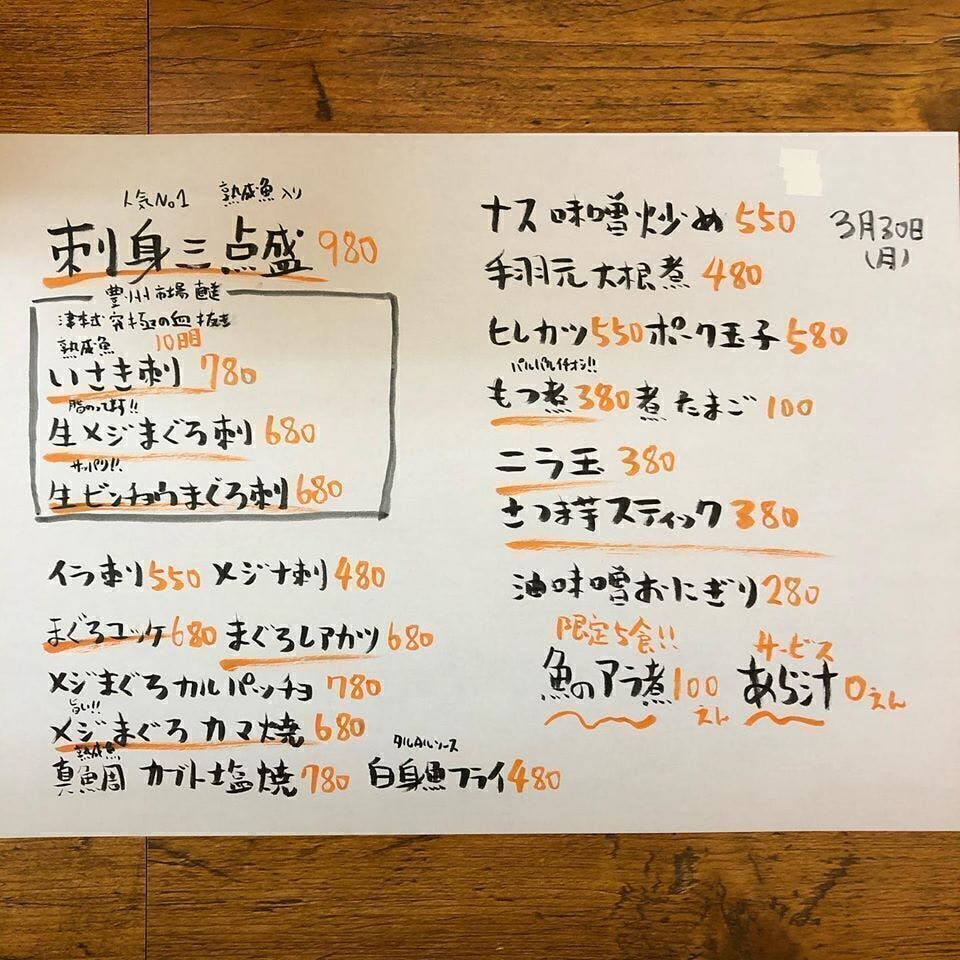 人気No1 熟成魚入り
刺身三点盛 980
豊州市場直送
津本式 究極の血抜き
熟成魚 10日目
いさき刺 780
脂のってます!!
生メジまぐろ刺 680
サッパリ!!
生ビンチョウまぐろ刺 680
イラ刺 550 メジナ刺 480
まぐろユッケ 680 まぐろレアカツ 680
メジまぐろカルパッチョ 780
旨い!!
メジまぐろカマ焼 680
熟成魚 タルタルソース
真鯛カブト塩焼 780 白身魚フライ 480
3月30日
(月)
ナス味噌炒め 550
手羽元大根煮 480
ヒレカツ 550 ポーク玉子 580
バルバルイチオシ!!
もつ煮 380 煮たまご 100
ニラ玉 380
さつま芋スティック 380
油味噌おにぎり 280
限定5食!! サービス
魚のアラ煮 100えん あら汁 0えん